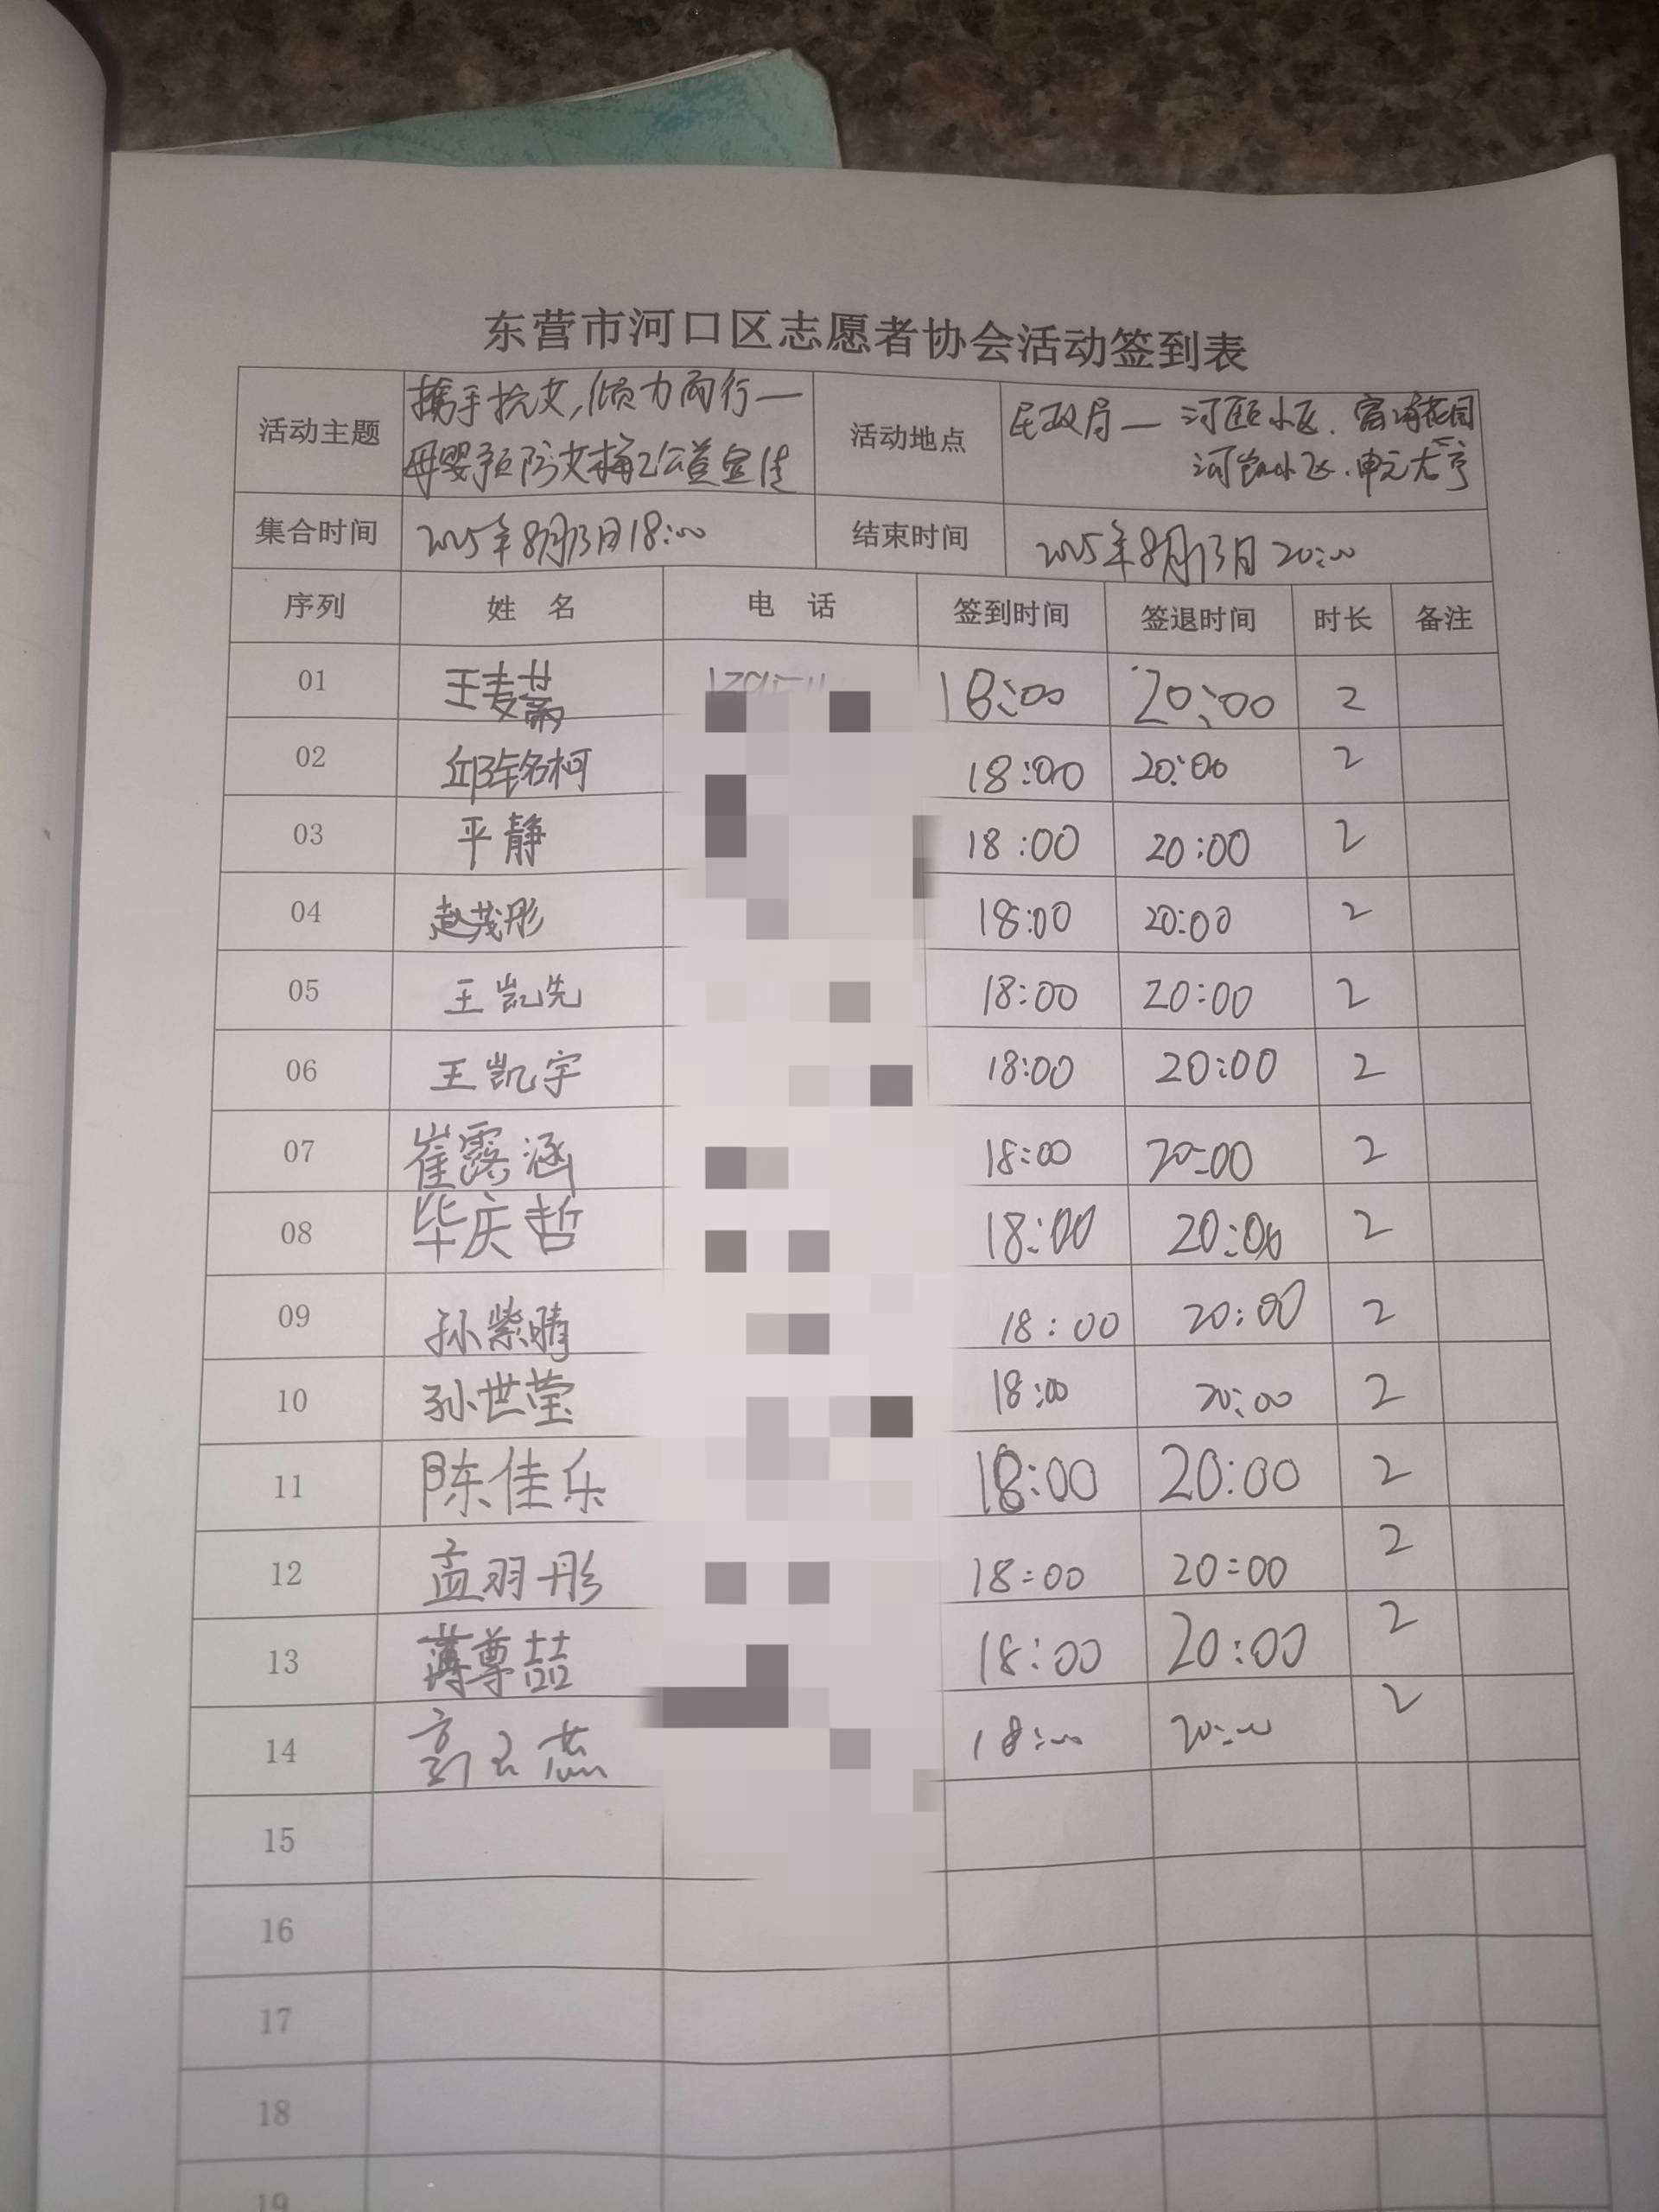 东营市河口区志愿者协会活动签到表
活动主题 携手抗艾,倾力而行— 活动地点 民政局— 河颐小区.富海花园
母婴预防艾梅乙公益宣传 河 小区.申元大亨
集合时间 2025年8月13日18:00 结束时间 2025年8月13日20:00
序列 姓 名 电 话 签到时间 签退时间 时长 备注
01 王麦 18:00 20:00 2
02 邱 铭柯 18:00 20:00 2
03 平静 18:00 20:00 2
04 赵茂彤 18:00 20:00 2
05 王凯先 18:00 20:00 2
06 王凯宇 18:00 20:00 2
07 崔露涵 18:00 20:00 2
08 毕庆哲 18:00 20:00 2
09 孙紫晴 18:00 20:00 2
10 孙世莹 18:00 20:00 2
11 陈佳乐 18:00 20:00 2
12 孟羽彤 18:00 20:00 2
13 薄尊喆 18:00 20:00 2
14 18:00 20:00 2
15
16
17
18
19